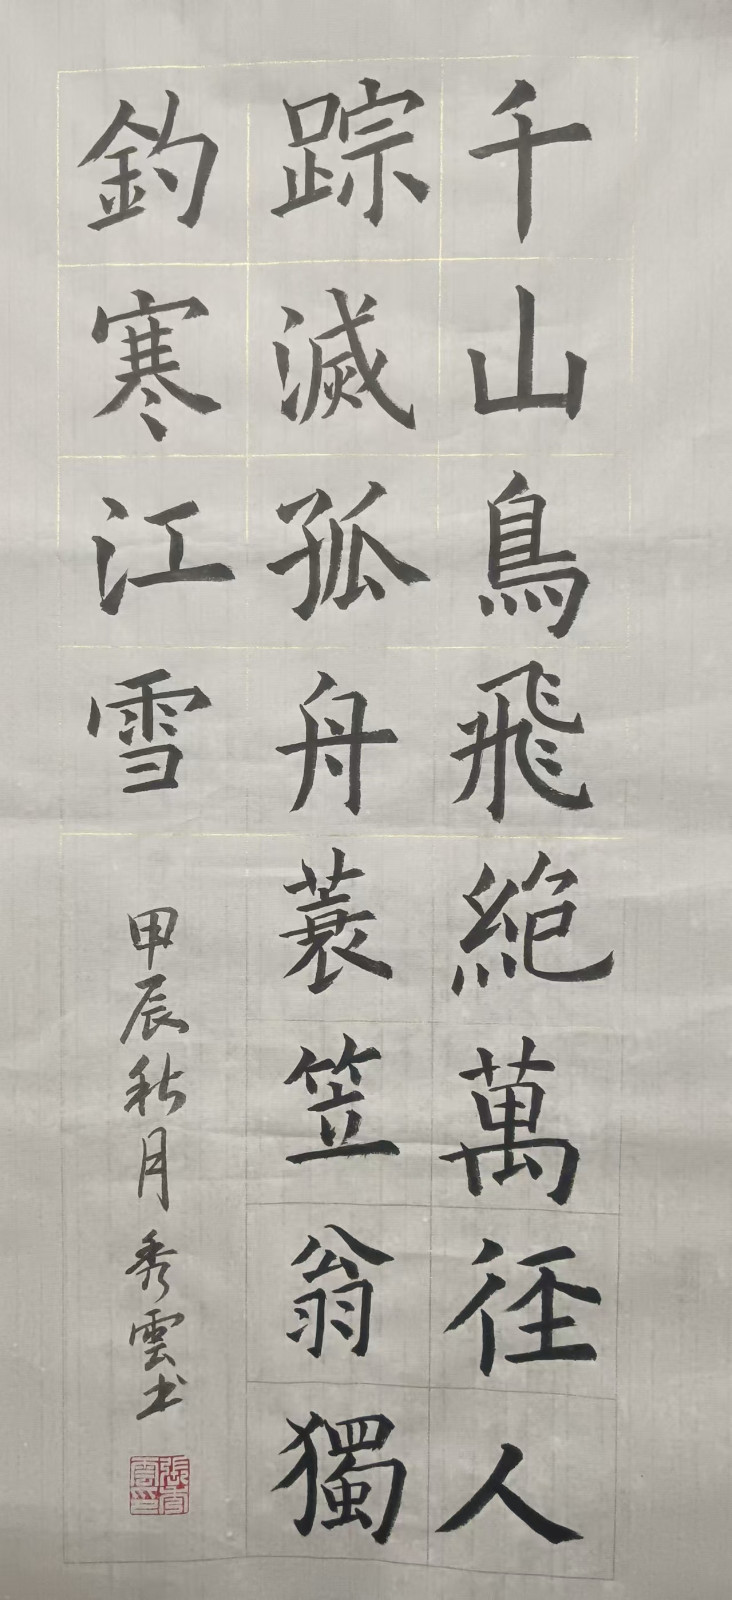 千山鳥飛絕萬徑人
踪滅孤舟蓑笠翁獨
釣寒江雪
甲辰秋月秀雲书
張秀雲印